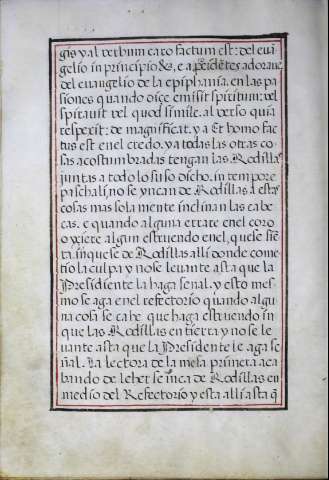 gis y al verbum caro factum est: del evan
gelio in principio &c, e a procidētes adoravē
del evangelio de la epiphania, en las pa
siones quando diçe emisit spiritum: vel
spiravit vel quod simile. al verso quia
respexit: de magnificat. y a Et homo fac
tus est en el credo. y a todas las otras co
sas acostumbradas tengan las Rodillas
juntas a todo lo suso dicho. in tempore
paschali, no se yncan de Rodillas a estas
cosas mas sola mente inclinan las cabe
cas. e quando alguna errare en el coro
o yciere algun estruendo en el, que se siē
ta, inquese de Rodillas alli donde come
tio la culpa y no se levante asta que la
Presidiente la haga señal. y esto mes
mo se aga en el refectorio quando algu
na cosa se cahe que haga estruendo in
que las Rodillas en tierra y no se le
vante asta que la Presidente le aga se
ñal. La lectora de la mesa primera aca
bando de leher se inca de Rodillas en
medio del Refectorio y esta alli asta q̄